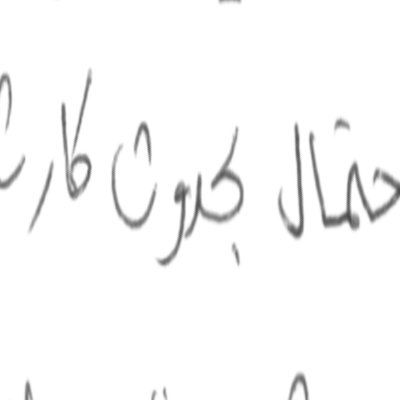 حتمال بحدوث كارث